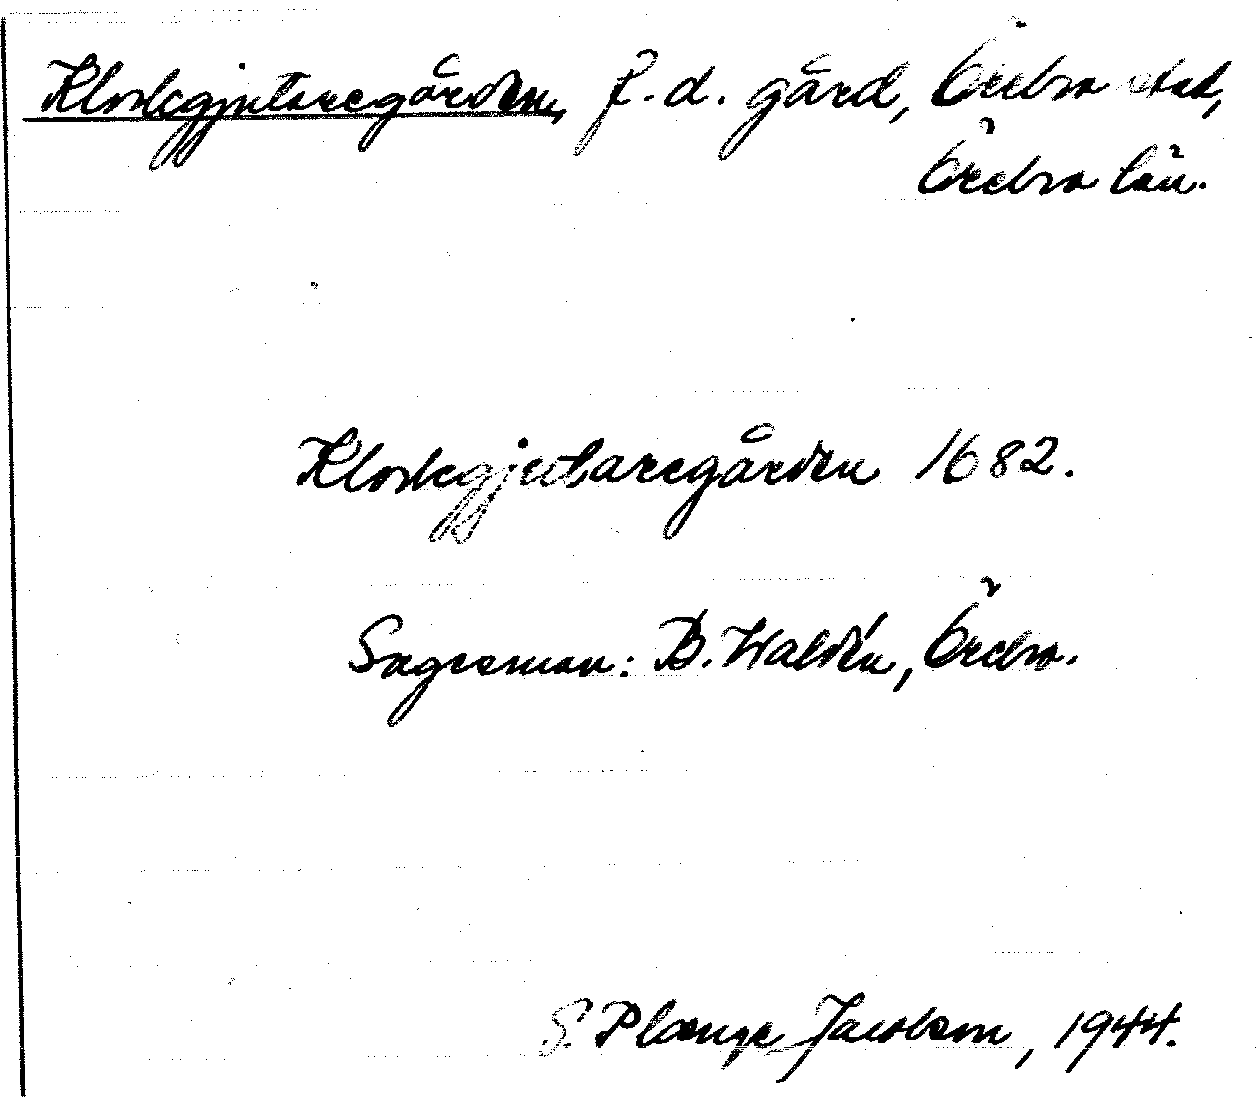 Klockgjutaregården, f.d. gård, Örebro stad,
Örebro län.
Klockgjutaregården 1682.
Sagesman: B. Waldén, Örebro.
S. Plænge Jacobson, 1944.